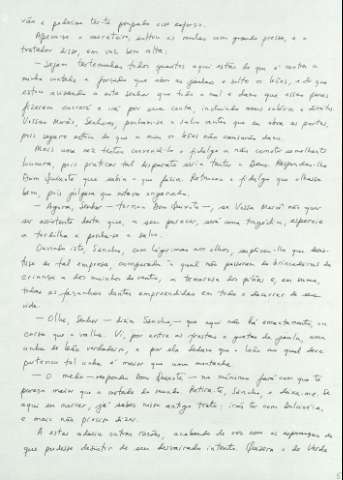 vão e poderiam ter-te poupado esse esforço.
Apeou-se o carreteiro, soltou as mulas com grande pressa, e o
tratador disse, em voz bem alta:
— Sejam testemunhas todos quantos aqui estão de que é contra a
minha vontade e forçado que abro as jaulas e solto os leões, e de que
estou avisando a este senhor que todo o mal e dano que essas feras
fizerem correrá e irá por sua conta, incluindo meus salários e direitos.
Vossas Mercês, Senhores, ponham-se a salvo antes que eu abra as portas,
pois seguro estou de que a mim os leões não causarão dano.
Mais uma vez tentou convencê-lo o fidalgo a não cometer semelhante
loucura, pois praticar tal disparate seria tentar a Deus. Respondeu-lhe
Dom Quixote que sabia o que fazia. Retrucou o fidalgo que olhasse
bem, pois julgava que estava enganado.
— Agora, Senhor — tornou Dom Quixote —, se Vossa Mercê não quer
ser assistente desta que, a seu parecer, será uma tragédia, esporeie
a tordilha e ponha-se a salvo.
Ouvindo isto, Sancho, com lágrimas nos olhos, suplicou-lhe que desis-
tisse de tal empresa, comparada à qual não passavam de brincadeiras de
crianças a dos moinhos de vento, a temerosa dos pisões e, em suma,
todas as façanhas dantes empreendidas em todo o decorrer de sua
vida.
— Olhe, Senhor — dizia Sancho — que aqui não há encantamento, ou
coisa que o valha. Vi, por entre as frestas e grades da jaula, uma
unha de leão verdadeiro, e por ela deduzo que o leão ao qual deve
pertencer tal unha é maior que uma montanha.
— O medo — respondeu Dom Quixote — no mínimo fará com que te
pareça maior que a metade do mundo. Retira-te, Sancho, e deixa-me. Se
aqui eu morrer, já sabes nosso antigo trato: irás ter com Dulcinéia,
e mais não preciso dizer.
A estas aduziu outras razões, acabando de vez com as esperanças de
que pudesse desistir de seu desvairado intento. Quisera o do Verde